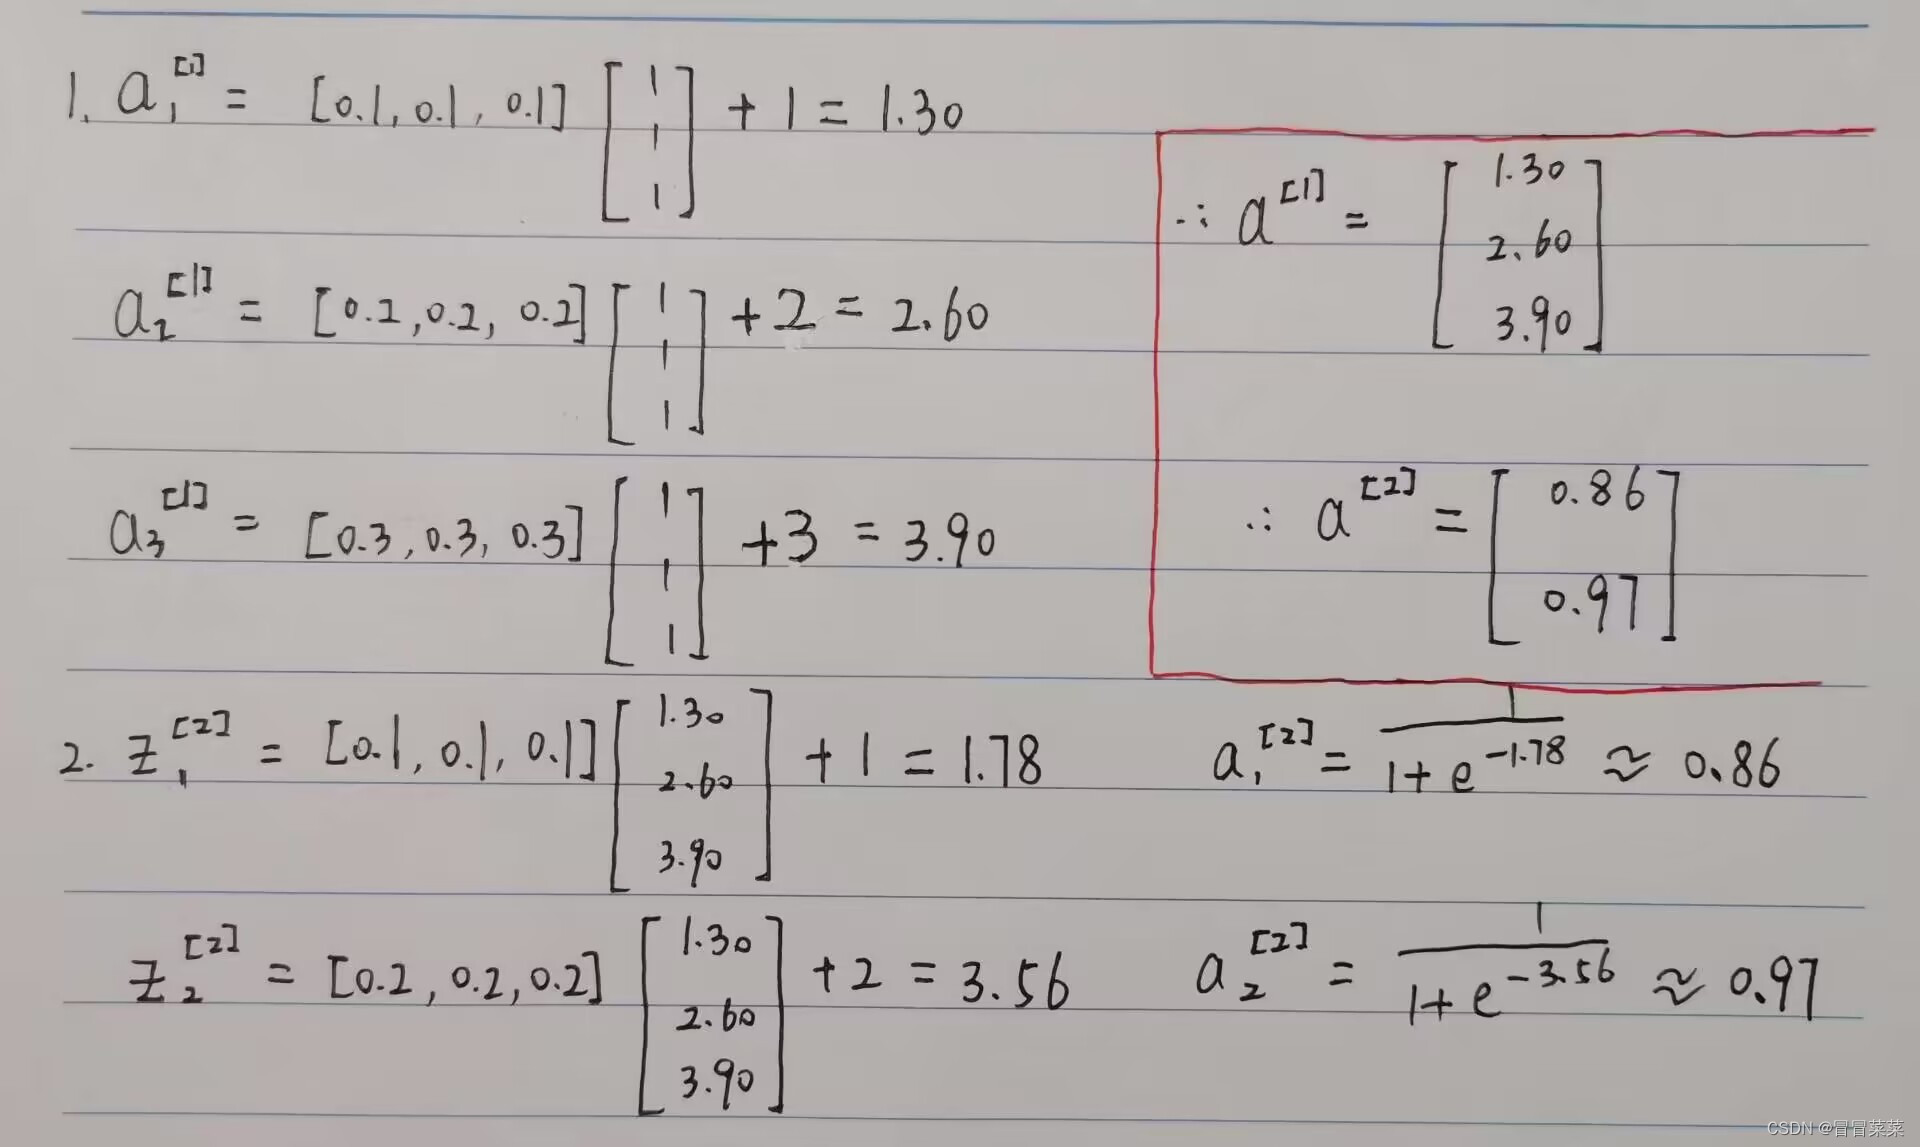 1. a₁^[1] = [0.1, 0.1, 0.1] [1 1 1] + 1 = 1.30
a₂^[1] = [0.2, 0.2, 0.2] [1 1 1] + 2 = 2.60
a₃^[1] = [0.3, 0.3, 0.3] [1 1 1] + 3 = 3.90
∴ a^[1] = [1.30 2.60 3.90]
∴ a^[2] = [0.86 0.97]
2. z₁^[2] = [0.1, 0.1, 0.1] [1.30 2.60 3.90] + 1 = 1.78
a₁^[2] = 1/(1+e^-1.78) ≈ 0.86
z₂^[2] = [0.2, 0.2, 0.2] [1.30 2.60 3.90] + 2 = 3.56
a₂^[2] = 1/(1+e^-3.56) ≈ 0.97
CSDN @冒冒菜菜